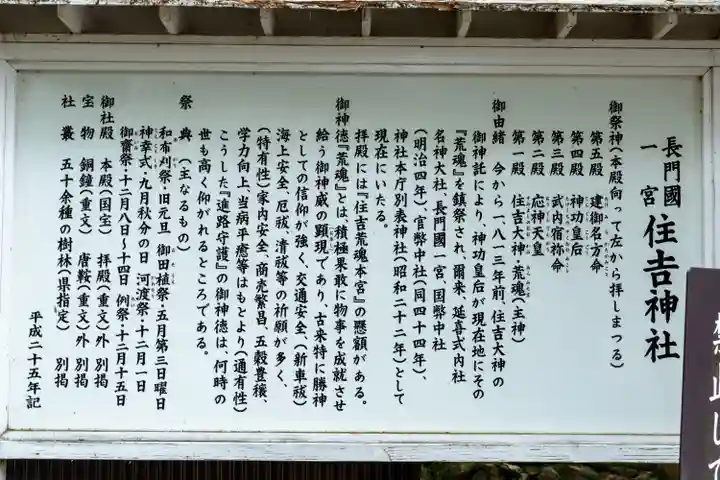 長門國
一宮 住吉神社
御祭神(本殿向って左から拝しまつる)
第五殿 建御名方命
第四殿 神功皇后
第三殿 武内宿祢命
第二殿 応神天皇
第一殿 住吉大神・荒魂(主神)
御由緒 今から一八一三年前、住吉大神の
御神託により、神功皇后が現在地にその
『荒魂』を鎮祭され、爾来、延喜式内社
名神大社、長門國一宮、国幣中社
(明治四年)、官幣中社(同四十四年)、
神社本庁別表神社(昭和二十二年)として
現在にいたる。
拝殿には『住吉荒魂本宮』の懸額がある。
御神徳『荒魂』とは、積極果敢に物事を成就させ
給う御神威の顕現であり、古来特に勝神
としての信仰が強く、交通安全(新車祓)
海上安全、厄祓、清祓等の祈願が多く、
(特有性)家内安全、商売繁昌、五穀豊穣、
学力向上、当病平癒等はもとより(通有性)
こうした『進路守護』の御神徳は、何時の
世も高く仰がれるところである。
祭典(主なるもの)
和布刈祭・旧元旦 御田植祭・五月第三日曜日
神幸式・九月秋分の日 河渡祭・十二月一日
御齋祭・十二月八日~十四日 例祭・十二月十五日
御社殿 本殿(国宝) 拝殿(重文)外 別掲
宝物 銅鐘(重文) 唐鞍(重文)外 別掲
社叢 五十余種の樹林(県指定) 別掲
平成二十五年記